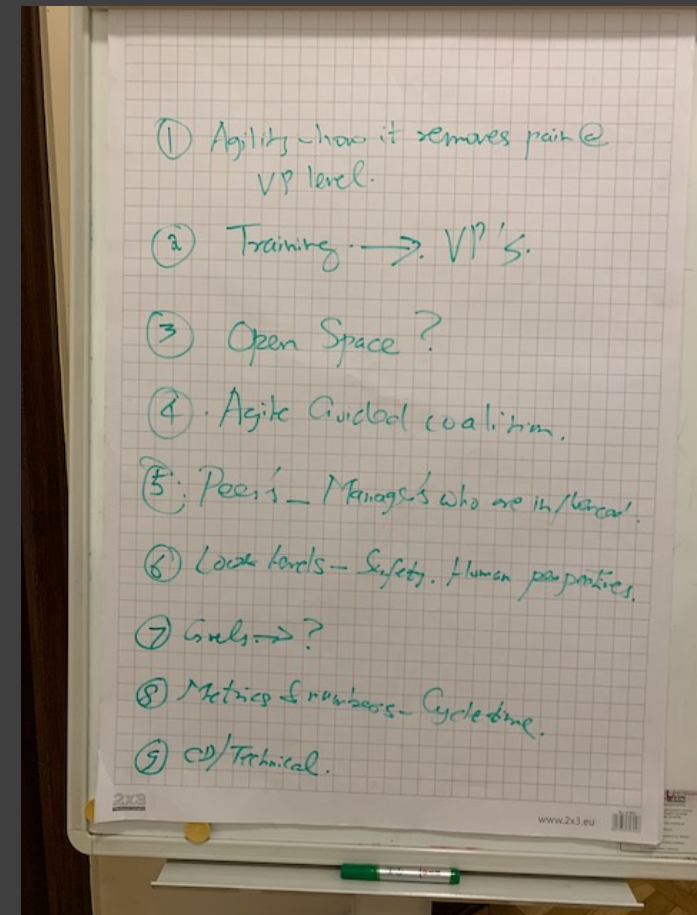 ① Agility - how it removes pain @
VP level.
② Training → VP's.
③ Open Space ?
④ . Agile Guided coalition.
⑤ : Peer's - Manager's who are influenced.
⑥ Lower levels - Safety. Human perspectives.
⑦ Goals → ?
⑧ Metrics & numbers - Cycle time.
⑨ CD/Technical.
2x3
www.2x3.eu